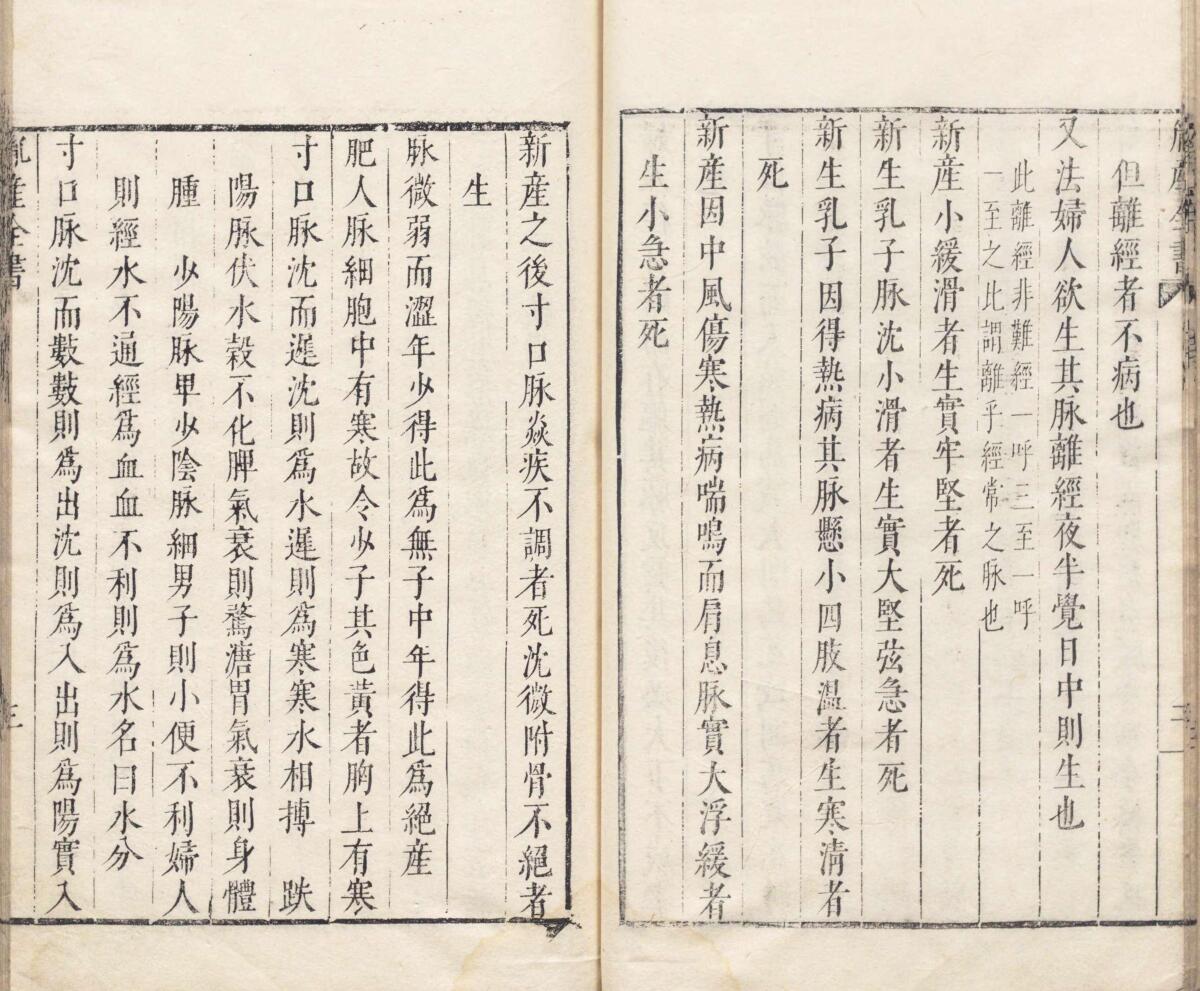 胤產全書
但離經者不病也
又法婦人欲生其脉離經夜半覺日中則生也
此離經非難經一呼三至一呼
一至之此謂離乎經常之脉也
新産小緩滑者生實牢堅者死
新生乳子脉沈小滑者生實大堅弦急者死
新生乳子因得熱病其脉懸小四肢温者生寒清者
死
新産因中風傷寒熱病喘鳴而肩息脉實大浮緩者
生小急者死
新産之後寸口脉焱疾不調者死沈微附骨不絕者
生
脉微弱而澀年少得此爲無子中年得此爲絕産
肥人脉細胞中有寒故令少子其色黃者胸上有寒
寸口脉沈而遲沈則爲水遲則爲寒寒水相摶　趺
陽脉伏水穀不化脾氣衰則鶩溏胃氣衰則身體
腫　少陽脉卑少陰脉細男子則小便不利婦人
則經水不通經爲血血不利則爲水名曰水分
寸口脉沈而數數則爲出沈則爲入出則爲陽實入
胤產全書
三